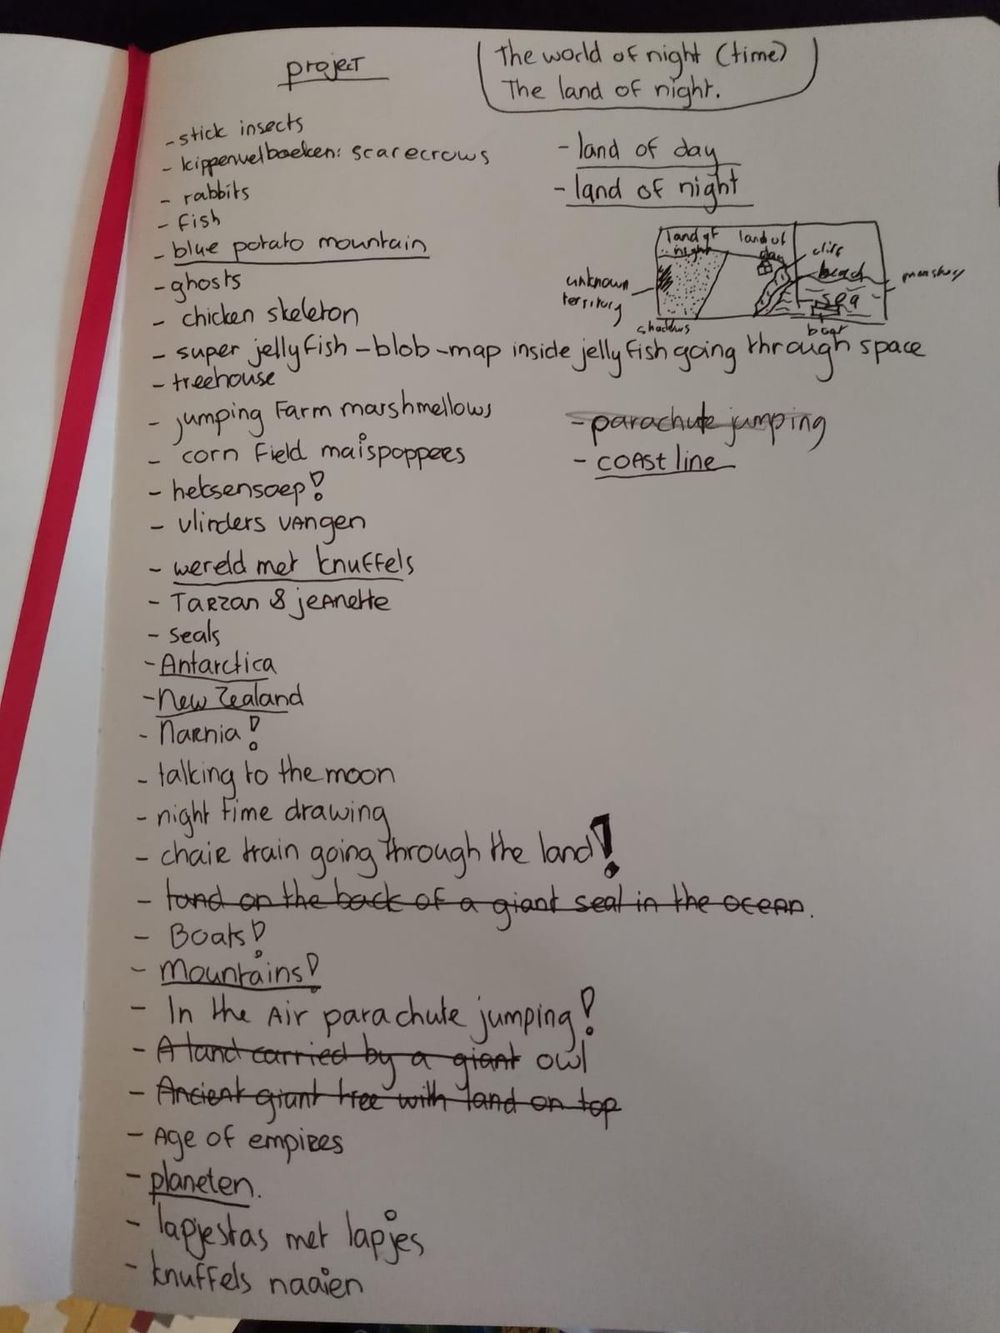 project
The world of night (time)
The land of night.
- stick insects
- kippenvelboeken: scarecrows
- rabbits
- fish
- blue potato mountain
- ghosts
- chicken skeleton
- super jellyfish - blob - map inside jellyfish going through space
- treehouse
- jumping farm marshmellows
- corn field maispoppees
- heksensoep!
- vlinders vangen
- wereld met knuffels
- Tarzan & jeanette
- seals
- Antarctica
- New Zealand
- Narnia!
- talking to the moon
- night time drawing
- chair train going through the land!
- land on the back of a giant seal in the ocean.
- Boats!
- Mountains!
- In the Air parachute jumping!
- A land carried by a giant owl
- Ancient giant tree with land on top
- Age of empires
- planeten.
- lapjestas met lapjes
- knuffels naaien
- land of day
- land of night
land of night
land of day
cliff
beach
sea
boat
unknown territory
shadows
- parachute jumping
- coast line